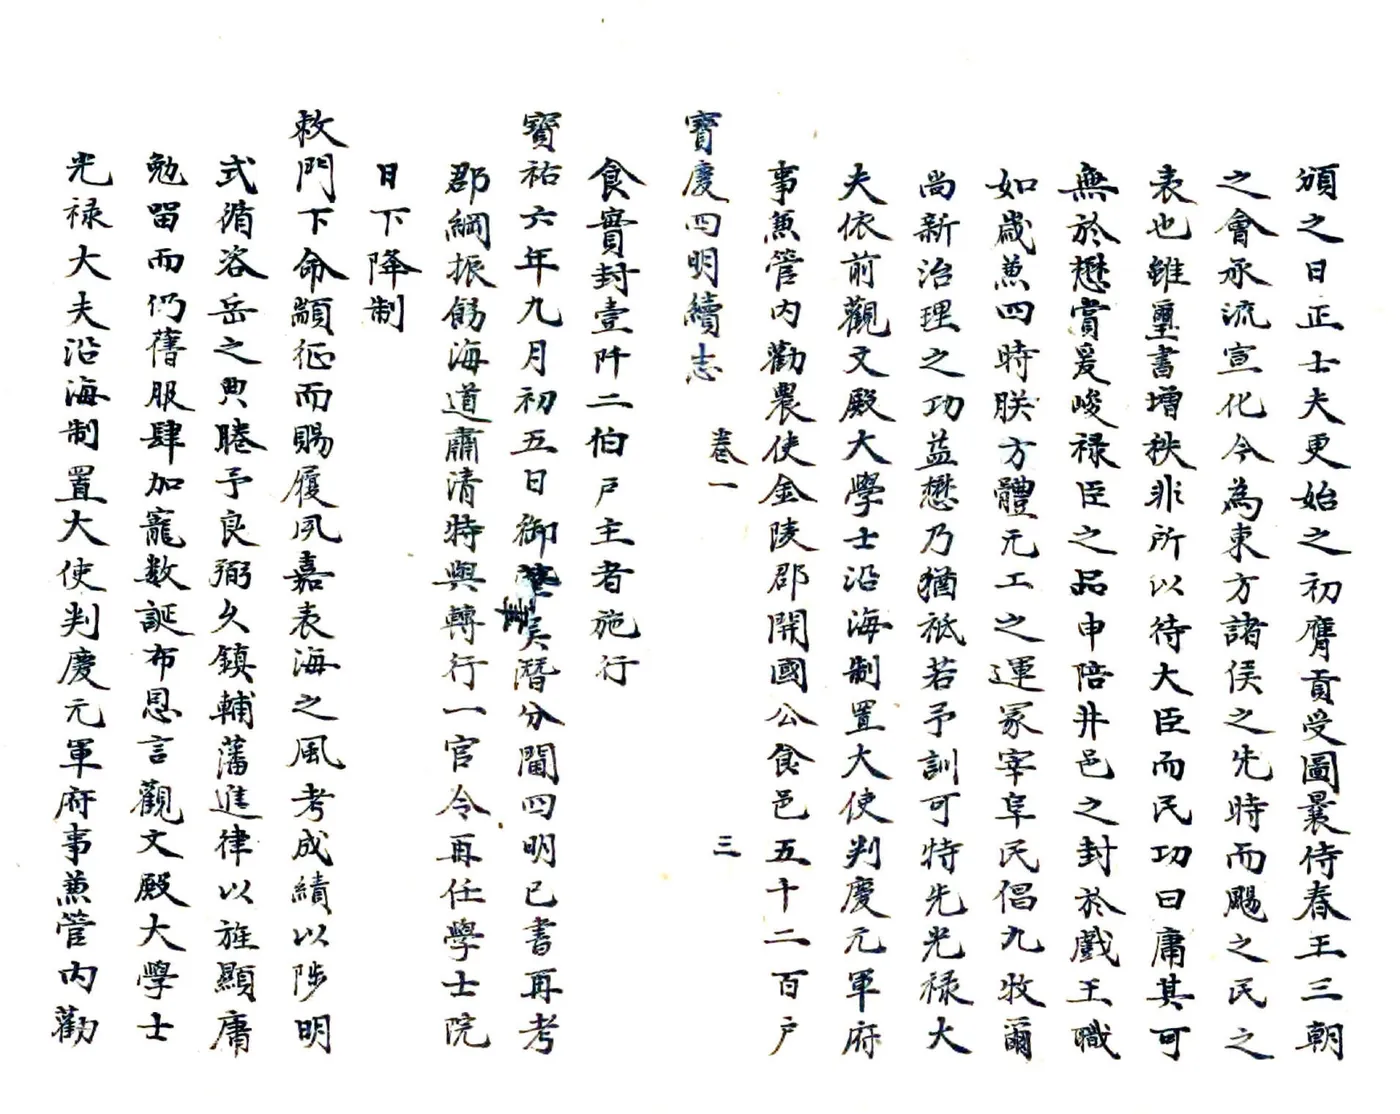 頒之日正士夫更始之初膺貢受圖曩侍春王三朝
之會承流宣化今為東方諸侯之先時而颺之民之
表也雖璽書增秩非所以待大臣而民功曰庸其可
無於懋賞爰峻祿臣之品申陪井邑之封於戲王職
如歲兼四時朕方體元工之運冢宰阜民倡九牧爾
尚新治理之功益懋乃猶祇若予訓可特先光祿大
夫依前觀文殿大學士沿海制置大使判慶元軍府
事兼管內勸農使金陵郡開國公食邑五十二百戶
寶慶四明續志 卷一 三
食實封壹阡二伯戶主者施行
寶祐六年九月初五日御筆吳潛分閫四明已書再考
郡綱振飭海道肅清特與轉行一官令再任學士院
日下降制
敕門下命顓征而賜履夙嘉表海之風考成績以陟明
式循咨岳之典睠予良弼久鎮輔藩進律以旌顯庸
勉留而仍舊服肆加寵數誕布恩言觀文殿大學士
光祿大夫沿海制置大使判慶元軍府事兼管內勸